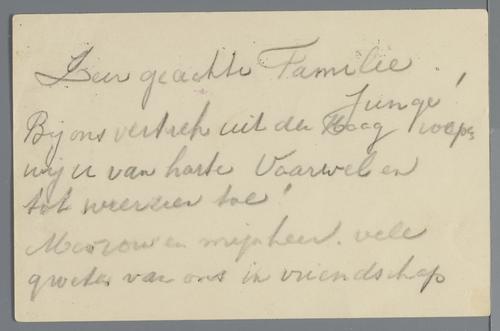 Zeer geachte Familie!
Junge
Bij ons vertrek uit den Haag roepen
wij u van harte Vaarwel en
tot weerzien toe!
Mevrouw en mijnheer. vele
groeten van ons in vriendschap